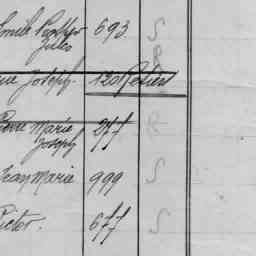 Emile 693 S
Jules R
Joseph 120
Pierre Marie 277 R
Joseph
Jean Marie 999 S
Victor. 677 S